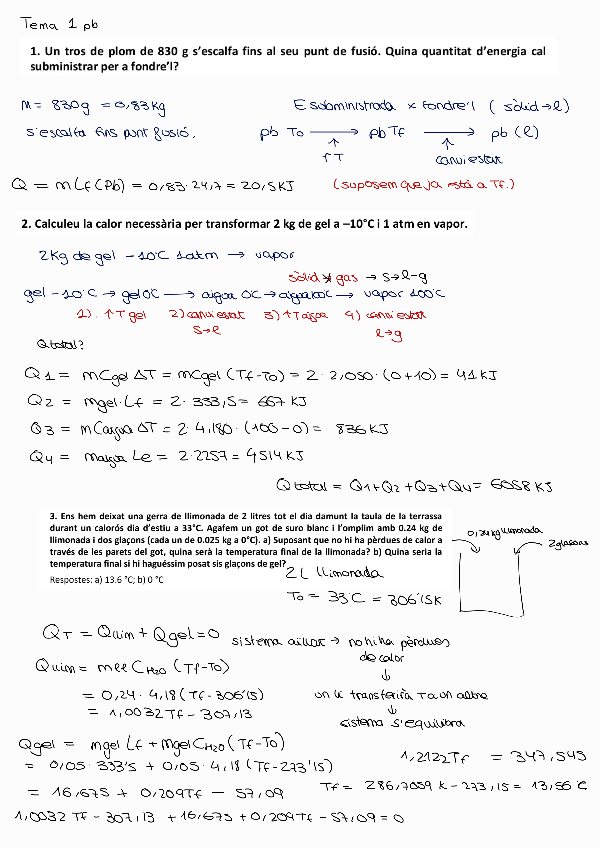 Tema 1 pb
1. Un tros de plom de 830 g s'escalfa fins al seu punt de fusió. Quina quantitat d'energia cal
subministrar per a fondre'l?
M = 830g = 0,83 kg
E subministrada x fondre'l ( sòlid → l )
s'escalfa fins punt fusió.
pb To → pb Tf → pb (l)
↑T canvi estat
Q = m Lf (Pb) = 0,83 · 24,7 = 20,5 KJ (suposem que ja està a Tf.)
2. Calculeu la calor necessària per transformar 2 kg de gel a –10°C i 1 atm en vapor.
2Kg de gel -10°C 1atm → vapor
sòlid gas → s→l-g
gel -10°C → gel 0°C → aigua 0C → aigua 100C → vapor 100°C
1). ↑T gel 2) canvi estat 3) ↑T aigua 4) canvi estat
s→l l→g
Q total?
Q1 = mCgel ΔT = mCgel (Tf-To) = 2 · 2,050 · (0+10) = 41 KJ
Q2 = mgel · Lf = 2 · 333,5 = 667 KJ
Q3 = mCaigua ΔT = 2 · 4,180 · (100-0) = 836 KJ
Q4 = maigua Le = 2 · 2257 = 4514 KJ
Q total = Q1+Q2+Q3+Q4 = 6058 KJ
3. Ens hem deixat una gerra de llimonada de 2 litros tot el dia damunt la taula de la terrassa
durant un calorós dia d'estiu a 33°C. Agafem un got de suro blanc i l'omplim amb 0.24 kg de
llimonada i dos glaçons (cada un de 0.025 kg a 0°C). a) Suposant que no hi ha pèrdues de calor a
través de les parets del got, quina serà la temperatura final de la llimonada? b) Quina seria la
temperatura final si hi haguéssim posat sis glaçons de gel?
Respostes: a) 13.6 °C; b) 0 °C
0,24 kg llimonada
2 glaçons
2 L llimonada
To = 33°C = 306'15K
QT = Qllim + Qgel = 0 sistema aïllat → no hi ha pèrdues
de calor
Qllim = mll CH2O (Tf-To)
= 0,24 · 4,18 (Tf - 306'15) un li transferirà T a un altre
= 1,0032 Tf - 307,13 sistema s'equilibra
Qgel = mgel Lf + mgel CH2O (Tf-To)
= 0,05 · 333'5 + 0,05 · 4,18 (Tf - 273'15)
1,2122 Tf = 347,545
= 16,675 + 0,209Tf - 57,09
Tf = 286,7059 K - 273,15 = 13,56°C
1,0032 Tf - 307,13 + 16,675 + 0,209Tf - 57,09 = 0